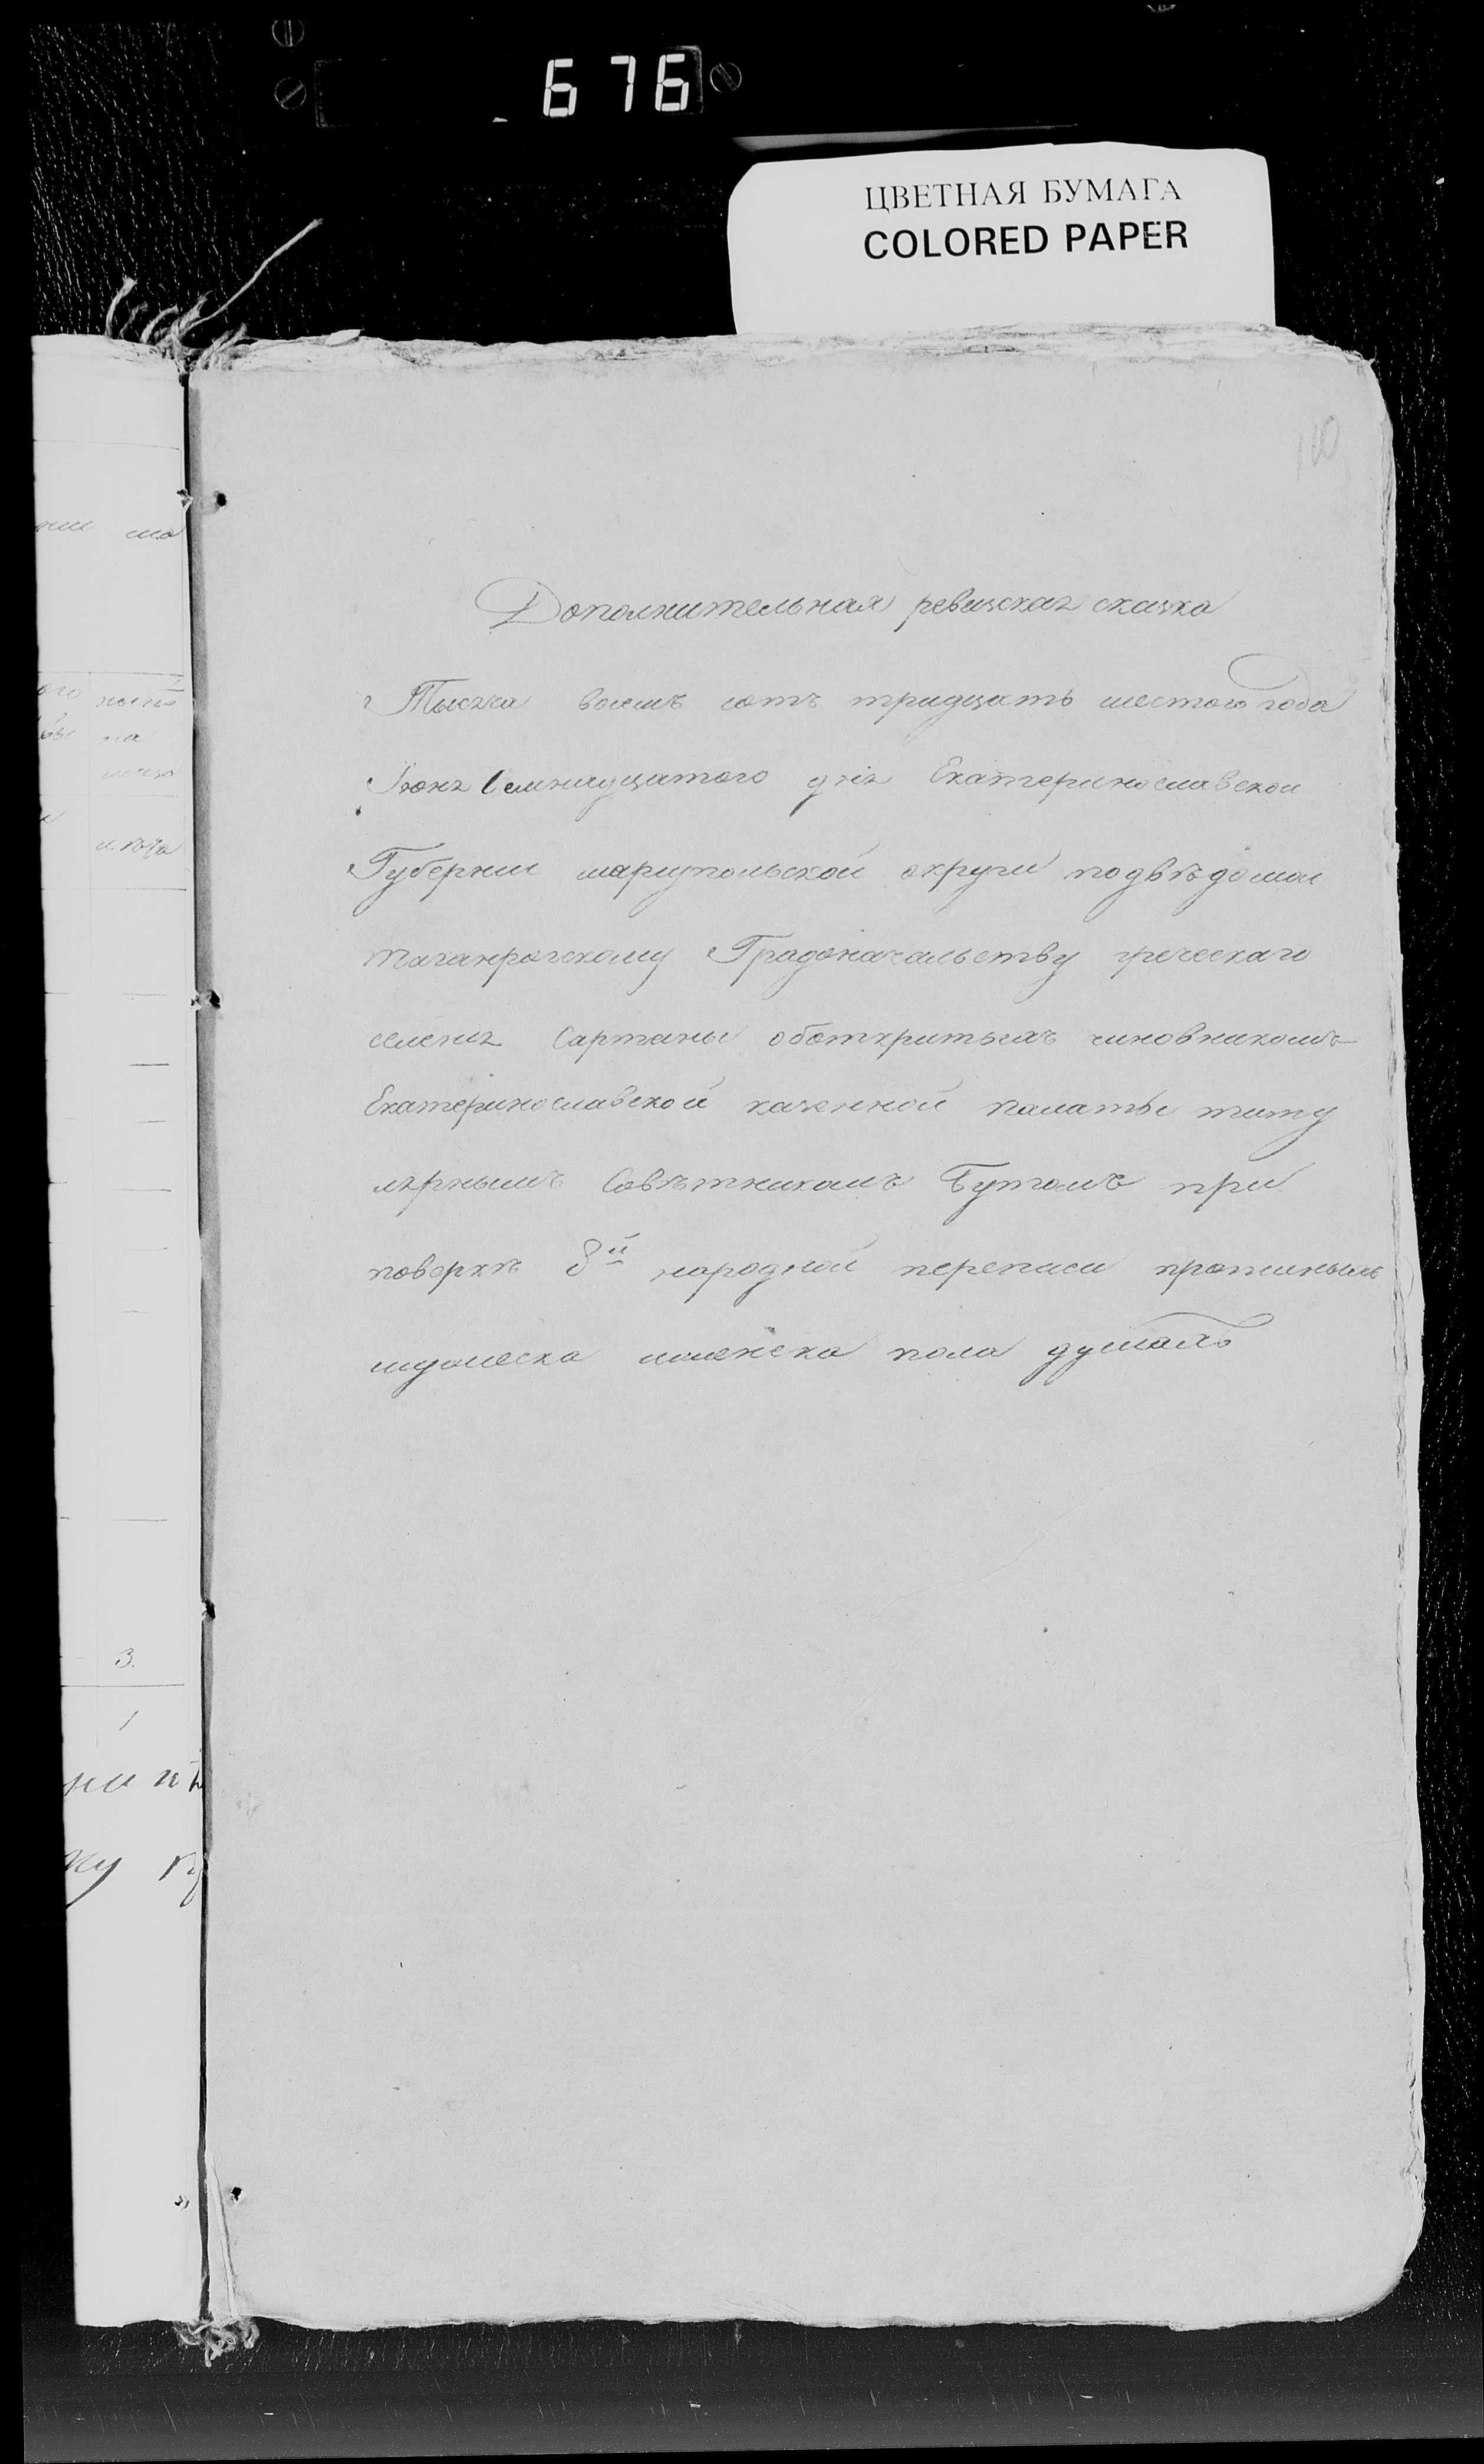 676
ЦВЕТНАЯ БУМАГА
COLORED PAPER
110
Дополнительная ревизская сказка
Тысяча восемь сотъ тридцать шестого года
Іюня Семнадцатого дня Екатеринославской
Губерніи мариупольской округи подвѣдомой
таганрогскому Градоначальству греческаго
селенія Сартаны оботкритыхъ чиновникомъ
Екатеринославской казенной палаты титу
лярнымъ Совѣтникомъ Бутомъ при
поверкѣ 8й народной переписи
мужеска женска пола душахъ
3.
1